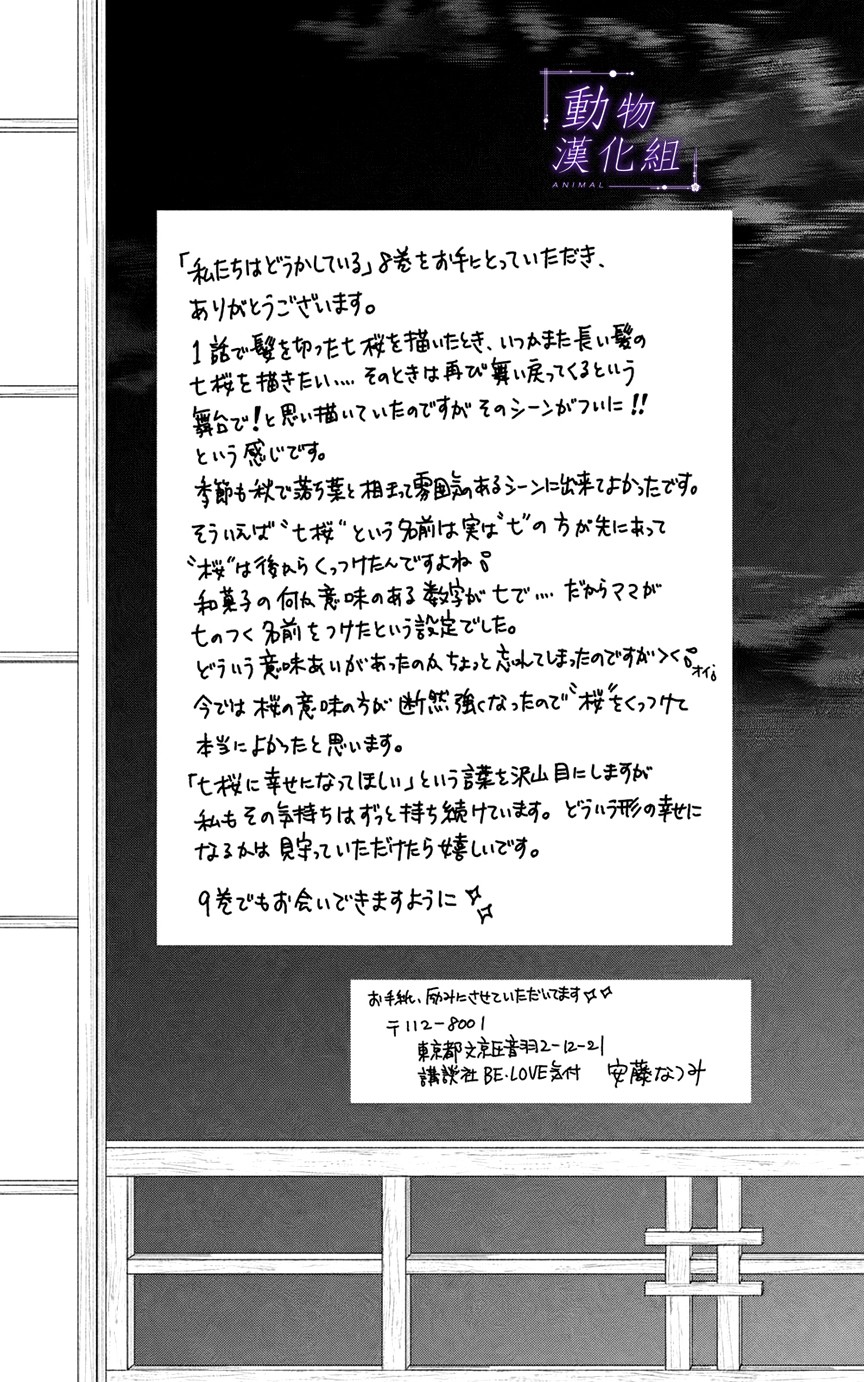 動物
漢化組
ANIMAL
「私たちはどうかしている」8巻をお手にとっていただき、
ありがとうございます。
1話で髪を切った七桜を描いたとき、いつかまた長い髪の
七桜を描きたい…。そのときは再び舞い戻ってくるという
舞台で!と思い描いていたのですがそのシーンがついに!!
という感じです。
季節も秋で落ち葉と相まって雰囲気のあるシーンに出来てよかったです。
そういえば“七桜”という名前は実は“七”の方が先にあって
“桜”は後からくっつけたんですよね
和菓子の何か意味のある数字が七で…。だからママが
七のつく名前をつけたという設定でした。
どういう意味あいがあったのかちょっと忘れてしまったのですが><
オイ
今では桜の意味の方が断然強くなったので“桜”をくっつけて
本当によかったと思います。
「七桜に幸せになってほしい」という言葉を沢山目にしますが
私もその気持ちはずっと持ち続けています。どういう形の幸せに
なるかは見守っていただけたら嬉しいです。
9巻でもお会いできますように
お手紙、励みにさせていただいてます
〒112-8001
東京都文京区音羽2-12-21
講談社BE・LOVE気付 安藤なつみ